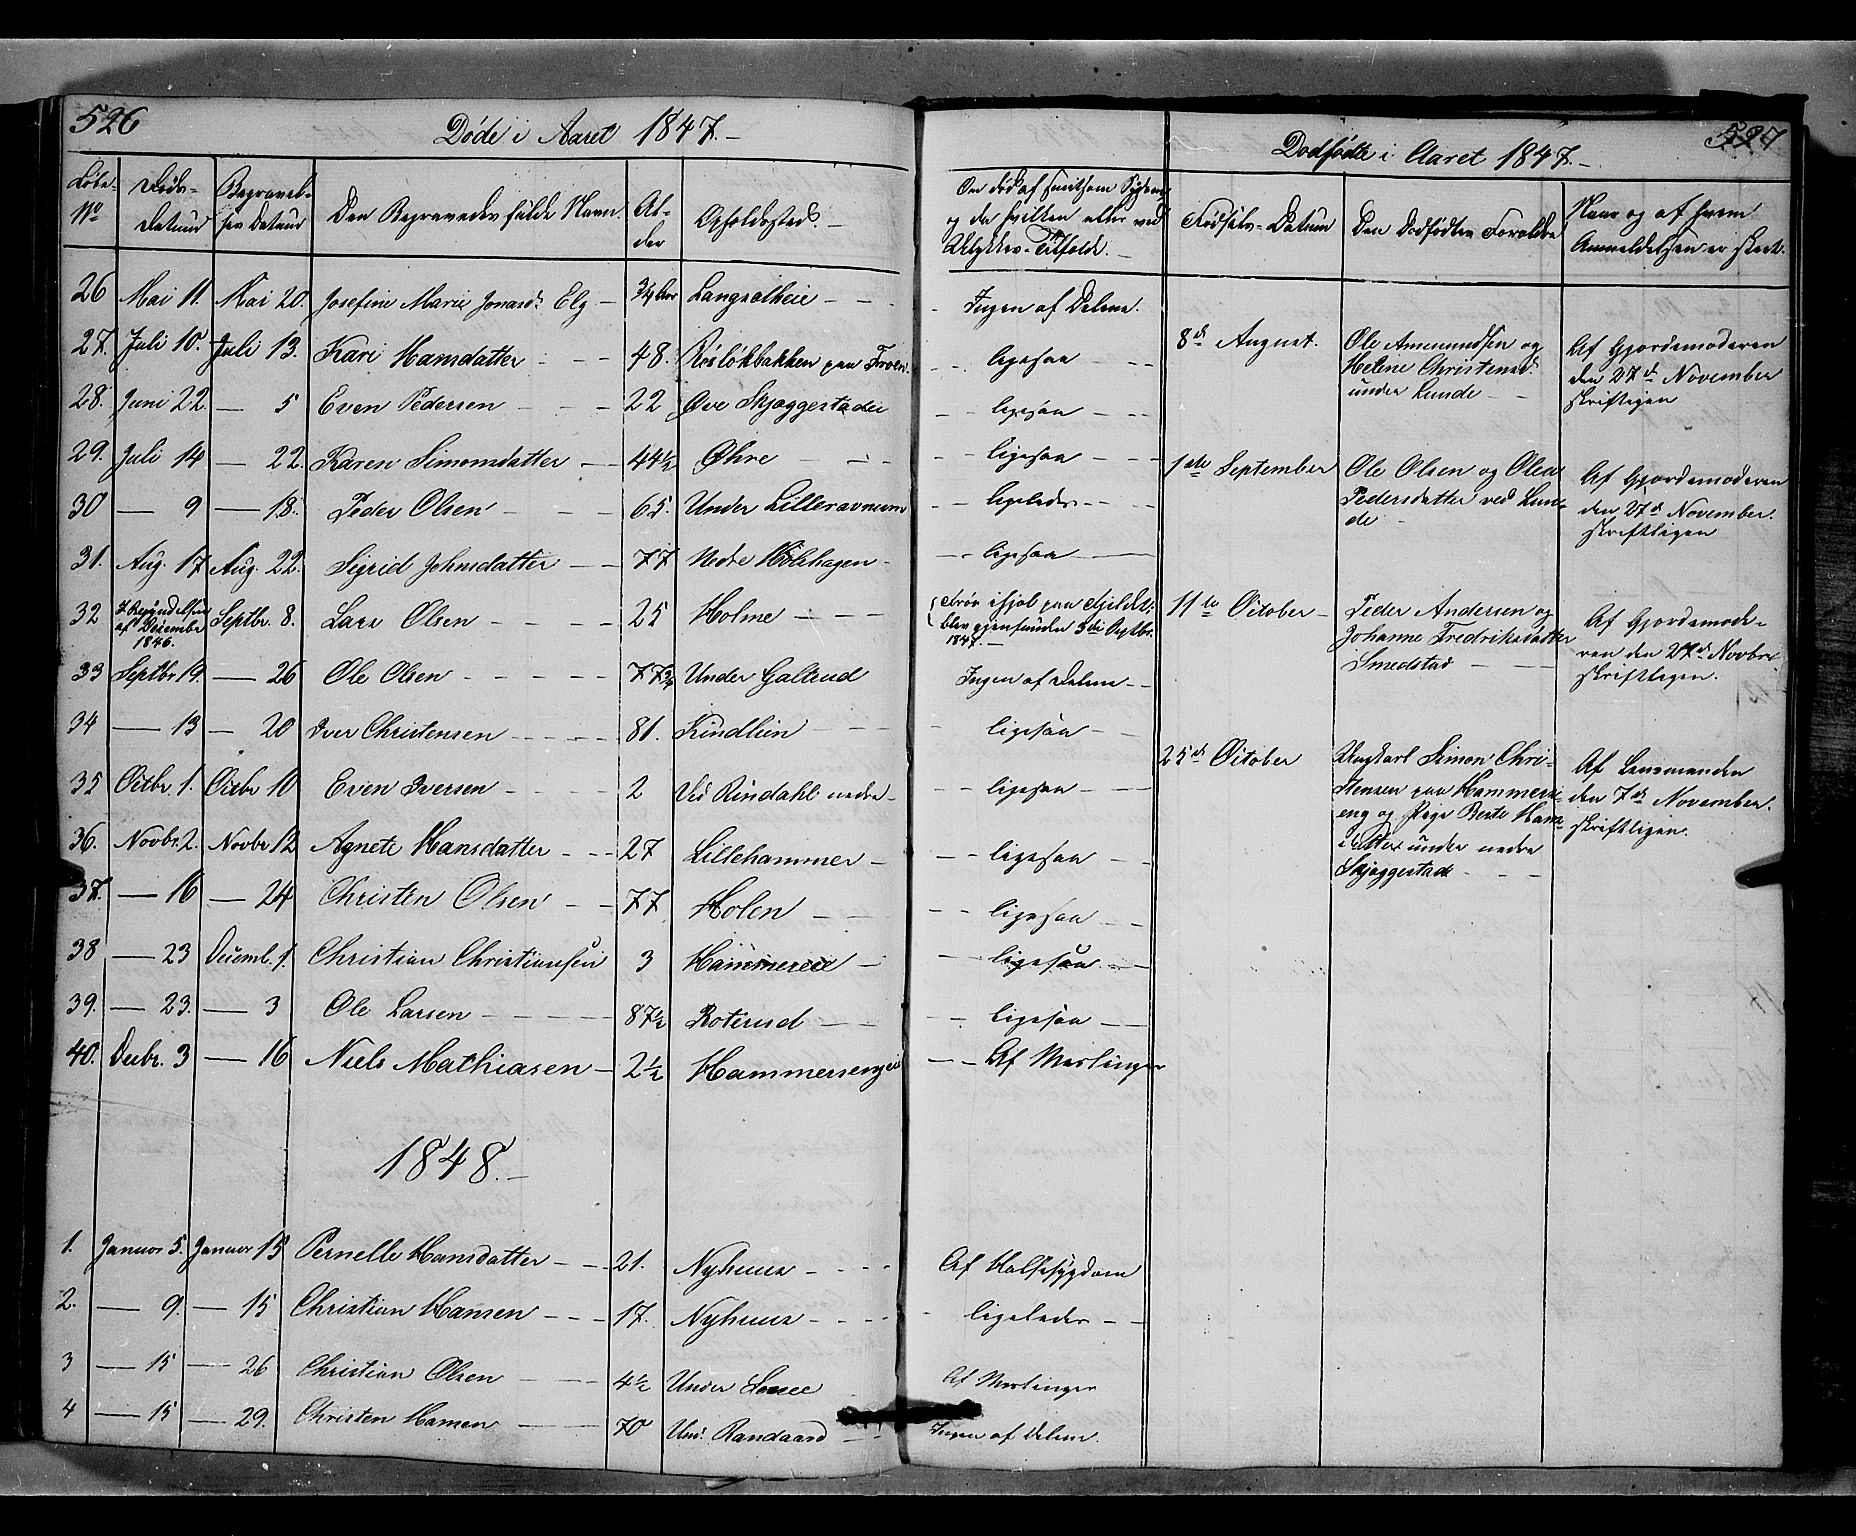 526
Døde i Aaret 1847.-
Løbe- No | Døds- Datum | Begravel- ses Datum | Den Begravedes fulde Navn. | Al- der | Opholdssted. | Om død af smitsom Sygdom og da hvilken eller ved Ulykkes-Tilfælde.
26 | Mai 11. | Mai 20. | Josefine Marie Jonasd. Elg | 3/4 Aar | Langseth | Ingen af Delene.
27. | Juli 10. | Juli 13. | Kari Hansdatter | 48. | Røsløkbakken paa | ligesaa
28. | Juni 22. | — 5 | Even Pedersen | 22 | Øve Skjæggestadei | ligesaa
29. | Juli 14 | — 22. | Karen Simonsdatter | 44½ | Øhre | ligesaa
30 | — 9 | — 18. | Peder Olsen | 65. | Under Lilleravnum | ligeledes
31. | Aug. 17 | Aug. 22. | Sigrid Johnsdatter | 77 | Nedre Holehagen | ligesaa
32 | I Begyndelsen af December 1846. | Septbr. 8. | Lars Olsen | 25 | Holme | Frøs ihjel paa Fjeldet; blev gjenfunden 3die Septbr. 1847.
33 | Septbr 19. | — 26 | Ole Olsen | 77¾ | Under Galterud | Ingen af Delene
34 | — 13 | — 20 | Iver Christensen | 81. | Kindlien | ligesaa
35 | Octbr 1. | Octbr 10 | Even Iversen | 2 | Ved Rindahl nedre | ligesaa
36. | Novbr. 2. | Novbr 12 | Agnete Hansdatter | 27 | Lillehammer | ligesaa
37. | — 16 | — 24 | Christen Olsen | 77 | Holen | ligesaa
38 | — 23 | Decemb. 1. | Christian Christiansen | 3 | Hammereie | ligesaa
39. | — 23. | — 3 | Ole Larsen | 87½ | Roterud | ligesaa
40. | Decbr. 3 | — 16 | Niels Mathiasen | 2½ | Hammersengeie | Af Meslinger
1848.-
1. | Januar 5. | Januar 15 | Pernelle Hansdatter | 21. | Nyhuus | Af Halssygdom
2. | — 9. | — 15 | Christian Hansen | 17. | Nyhuus | ligeledes
3 | — 15 | — 26 | Christian Olsen | 4½ | Under | Af Meslinger
4 | — 15 | — 29. | Christen Hansen | 70 | Und. Randgaard | Ingen af Delene.
527
Dødfødte i Aaret 1847.-
Fødsels-Datum | Den Dødfødtes Forældre | Naar og af hvem Anmeldelsen er skeet.
8de August. | Ole Amundsen og
Helene Christensd.
under Lunde | Af Gjordemoderen
den 27de November
skriftligen
1ste September | Ole Olsen og Olea
Pedersdatter ved Lun-
de | Af Gjordemoderen
den 27de November.
skriftligen
11te October | Peder Andersen og
Johanne Fredriksdatter
Smedstad | Af Gjordemode-
ren den 27de Novbr
skriftligen.
25de October | Ungkarl Simon Chri-
stensen paa Hammers-
eng og Pige Berte Hans-
datter under nedre
Skjæggestad | Af Lensmanden
den 7de November.
skriftligen.